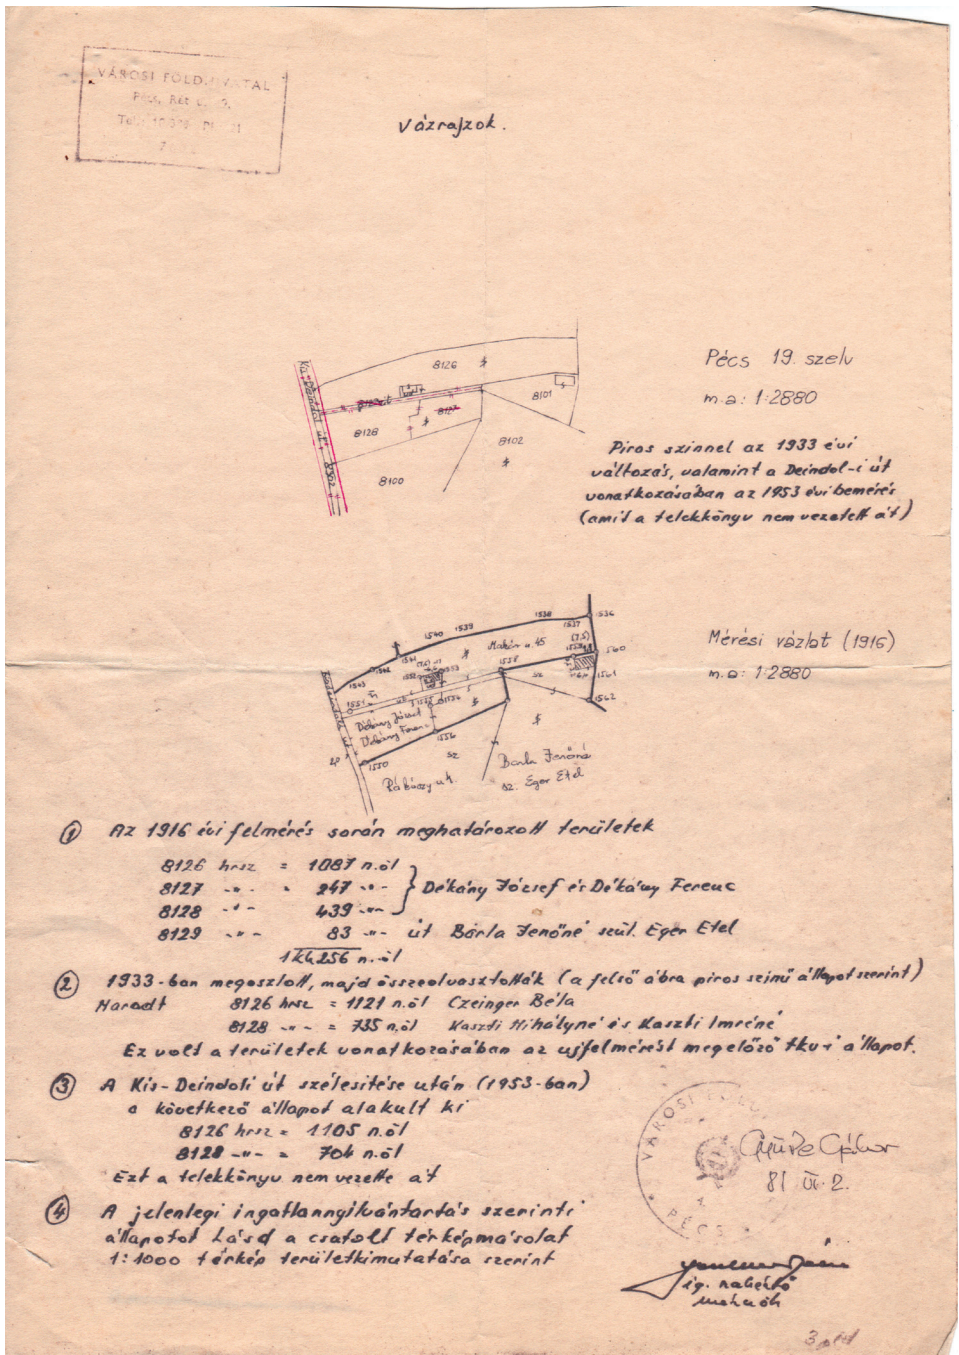 VÁROSI FÖLDHIVATAL
Pécs, Rét u.
Tel.:
Vázrajzok.
8126
8101
8127
8128
8102
8100
Kis-Deindoli út
8302
Pécs 19. szelv
m.a: 1:2880
Piros szinnel az 1933 évi
változás, valamint a Deindol-i út
vonatkozásában az 1953 évi bemérés
(amit a telekkönyv nem vezetett át)
1536
1538
1537
1539
1540
1541
1542
1543
Makár u. 45
(7,5)
1560
1558
1561
1562
1551
1552
1553
sz
Dékány József
Dékány Ferenc
1556
1550
sz
Rákóczy u.
Barla Jenőné
sz. Eger Etel
Mérési vázlat (1916)
m.a: 1:2880
① Az 1916 évi felmérés során meghatározott területek
8126 hrsz = 1087 n.öl
8127 -"- " 247 -"-
8128 -"- 439 -"-
} Dékány József és Dékány Ferenc
8129 -"- 83 -"- út Barla Jenőné szül. Eger Etel
256 n.öl
② 1933-ban megoszlott, majd összeolvasztották (a felső ábra piros szinű állapot szerint)
Maradt 8126 hrsz = 1121 n.öl Czeinger Béla
8128 -"- = 735 n.öl Kaszti Mihályné és Kaszti Imréné
Ez volt a területek vonatkozásában az ujfelmérést megelőző tkv-i állapot.
③ A Kis-Deindoli út szélesitése után (1953-ban)
a következő állapot alakult ki
8126 hrsz = 1105 n.öl
8128 -"- = 704 n.öl
Ezt a telekkönyv nem vezette át
④ A jelenlegi ingatlannyilvántartás szerinti
állapotot Lásd a csatolt térképmásolat
1:1000 térkép területkimutatása szerint
VÁROSI FÖLD
PÉCS
Gábor
ig. szakértő
mérnök
3 pld